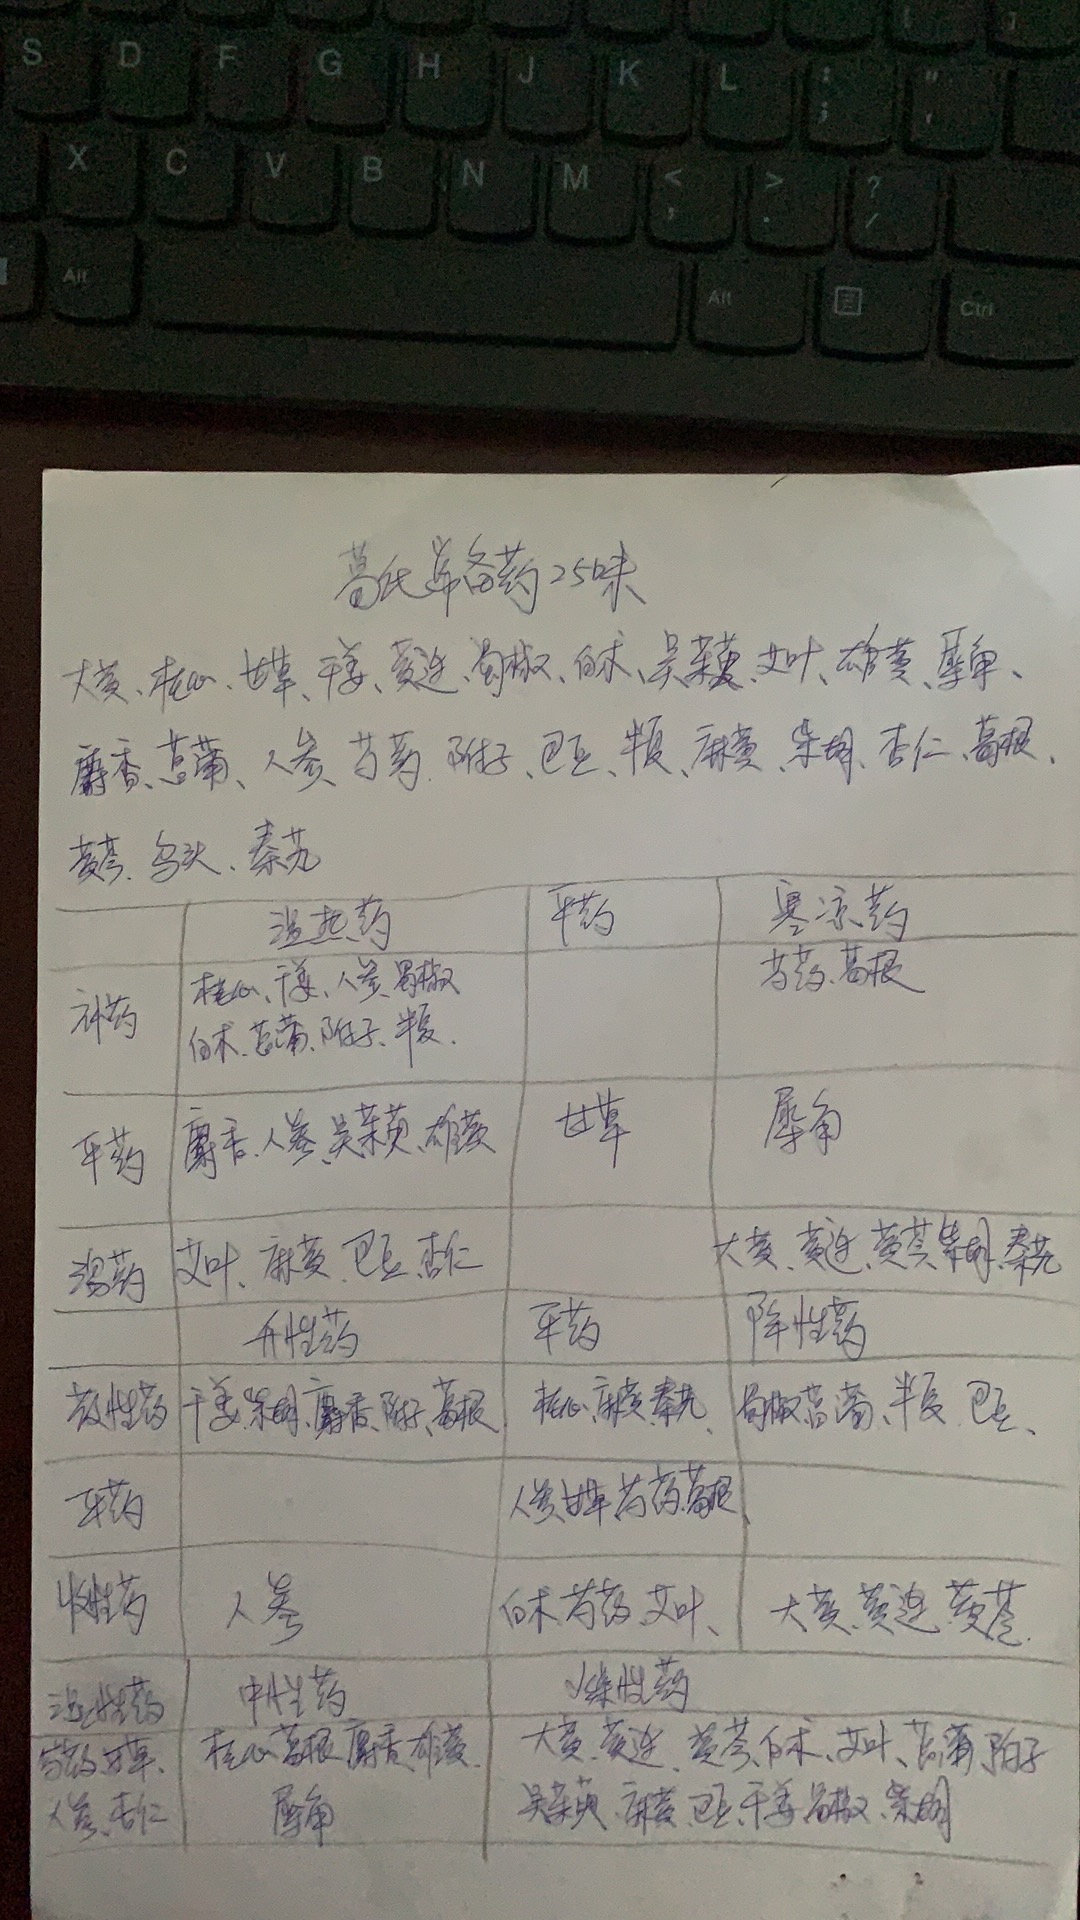 S D F G H J K L : ; " '
X C V B N M < , > . ? /
Alt Alt Ctrl
葛氏常备药25味
大黄、桂心、甘草、干姜、黄连、蜀椒、白术、吴茱萸、艾叶、雄黄、犀角、
麝香、菖蒲、人参、芍药、附子、巴豆、半夏、麻黄、柴胡、杏仁、葛根、
黄芩、乌头、秦艽
温热药 平药 寒凉药
补药 桂心、干姜、人参、蜀椒 芍药、葛根
白术、菖蒲、附子、半夏、
平药 麝香、人参、吴茱萸、雄黄 甘草 犀角
泻药 艾叶、麻黄、巴豆、杏仁 大黄、黄连、黄芩、柴胡、秦艽
升性药 平药 降性药
散性药 干姜、柴胡、麝香、附子、葛根 桂心、麻黄、秦艽、 蜀椒、菖蒲、半夏、巴豆、
平药 人参、甘草、芍药、葛根、
收性药 人参 白术、芍药、艾叶、 大黄、黄连、黄芩
湿性药 中性药 燥性药
芍药、甘草、 桂心、葛根、麝香、雄黄、 大黄、黄连、黄芩、白术、艾叶、菖蒲、附子
人参、杏仁 犀角 吴茱萸、麻黄、巴豆、干姜、蜀椒、柴胡